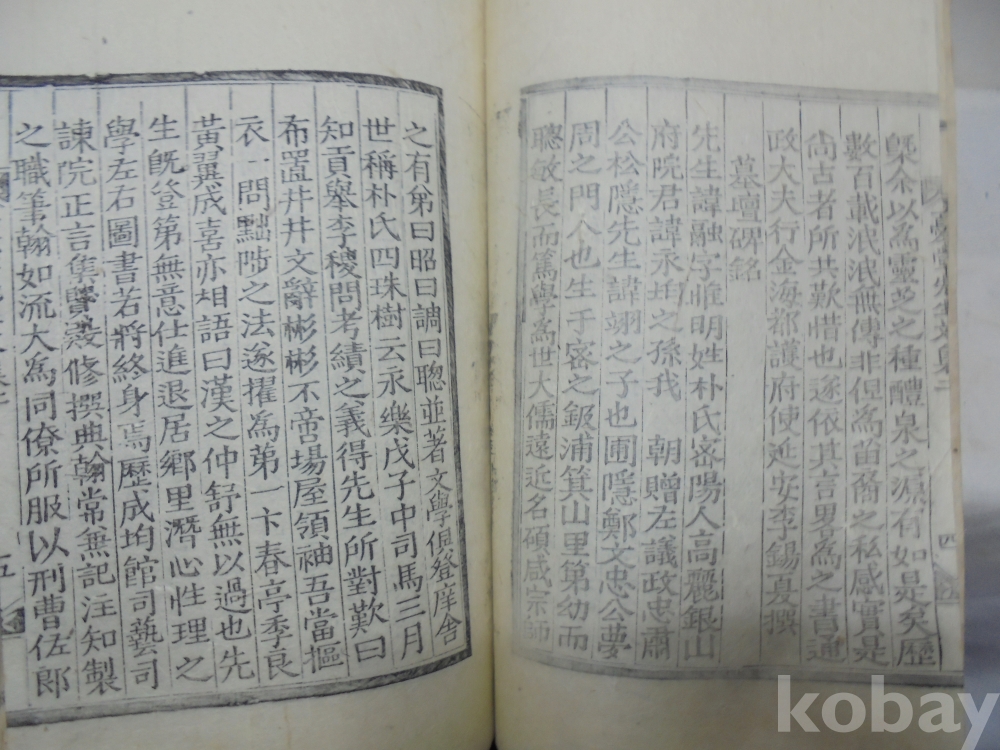 槩余以為靈芝之種醴泉之源有如是矣歷
數百載泯泯無傳非但為笛裔之私感實是
尙古者所共歎惜也遂依其言畧為之書通
政大夫行金海都護府使延安李錫夏撰
墓壇碑銘
先生諱融字惟明姓朴氏密陽人高麗銀山
府院君諱永均之孫我 朝贈左議政忠肅
公松隱先生諱翊之子也圃隱鄭文忠公夢
周之門人也生于密之鈒浦箕山里第幼而
聰敏長而篤學為世大儒遠近名碩咸宗師
四
之有弟曰昭曰調曰聰並著文學俱登庠舍
世稱朴氏四珠樹云永樂戊子中司馬三月
知貢舉李稷問考績之義得先生所對歎曰
布置井井文辭彬彬不啻場屋領袖吾當摳
衣一問黜陟之法遂擢為第一卞春亭季良
黃翼成喜亦相語曰漢之仲舒無以過也先
生旣登第無意仕進退居鄕里潛心性理之
學左右圖書若將終身焉歷成均館司藝司
諫院正言集賢殿修撰典翰常無記注知製
之職筆翰如流大為同僚所服以刑曹佐郞
五
kobay